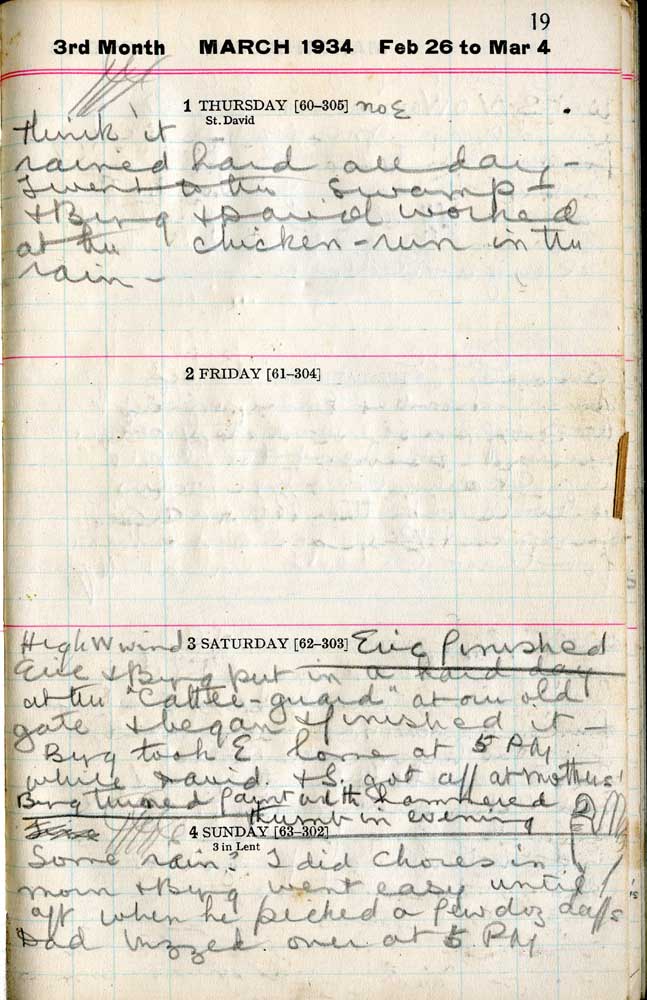 19
3rd Month MARCH 1934 Feb 26 to Mar 4
1 THURSDAY [60–305]
St. David
think it
rained hard all day –
I went to the Swamp –
+ Byng + David worked
at the chicken-run in the
rain –
2 FRIDAY [61–304]
High W wind 3 SATURDAY [62–303] Eric finished
Eric + Byng put in a hard day
at the "Cattle-guard" at our old
gate + began + finished it –
Byng took E home at 5 PM
while David. + S. got off at mothers'
Byng turned faint with hammered
thumb in evening
4 SUNDAY [63–302]
3 in Lent
Some rain? I did chores in
morn + Byng went easy until
aft when he picked a few doz daffs
Dad buzzed over at 5 PM